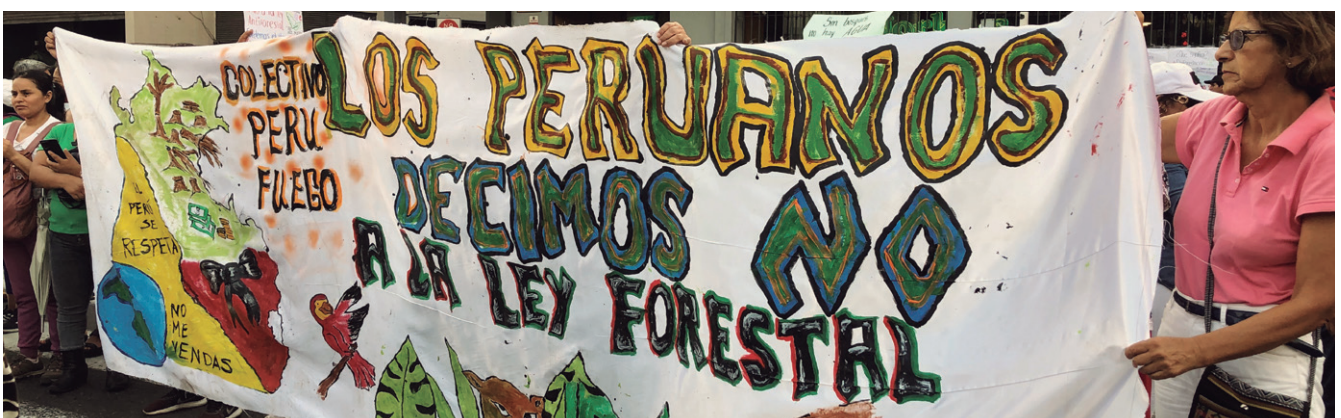 COLECTIVO
PERU
FUEGO
LOS PERUANOS
DECIMOS NO
A LA LEY FORESTAL
EL
PERÚ
SE
RESPETA
NO
ME
VENDAS
Sin bosques
no hay AGUA